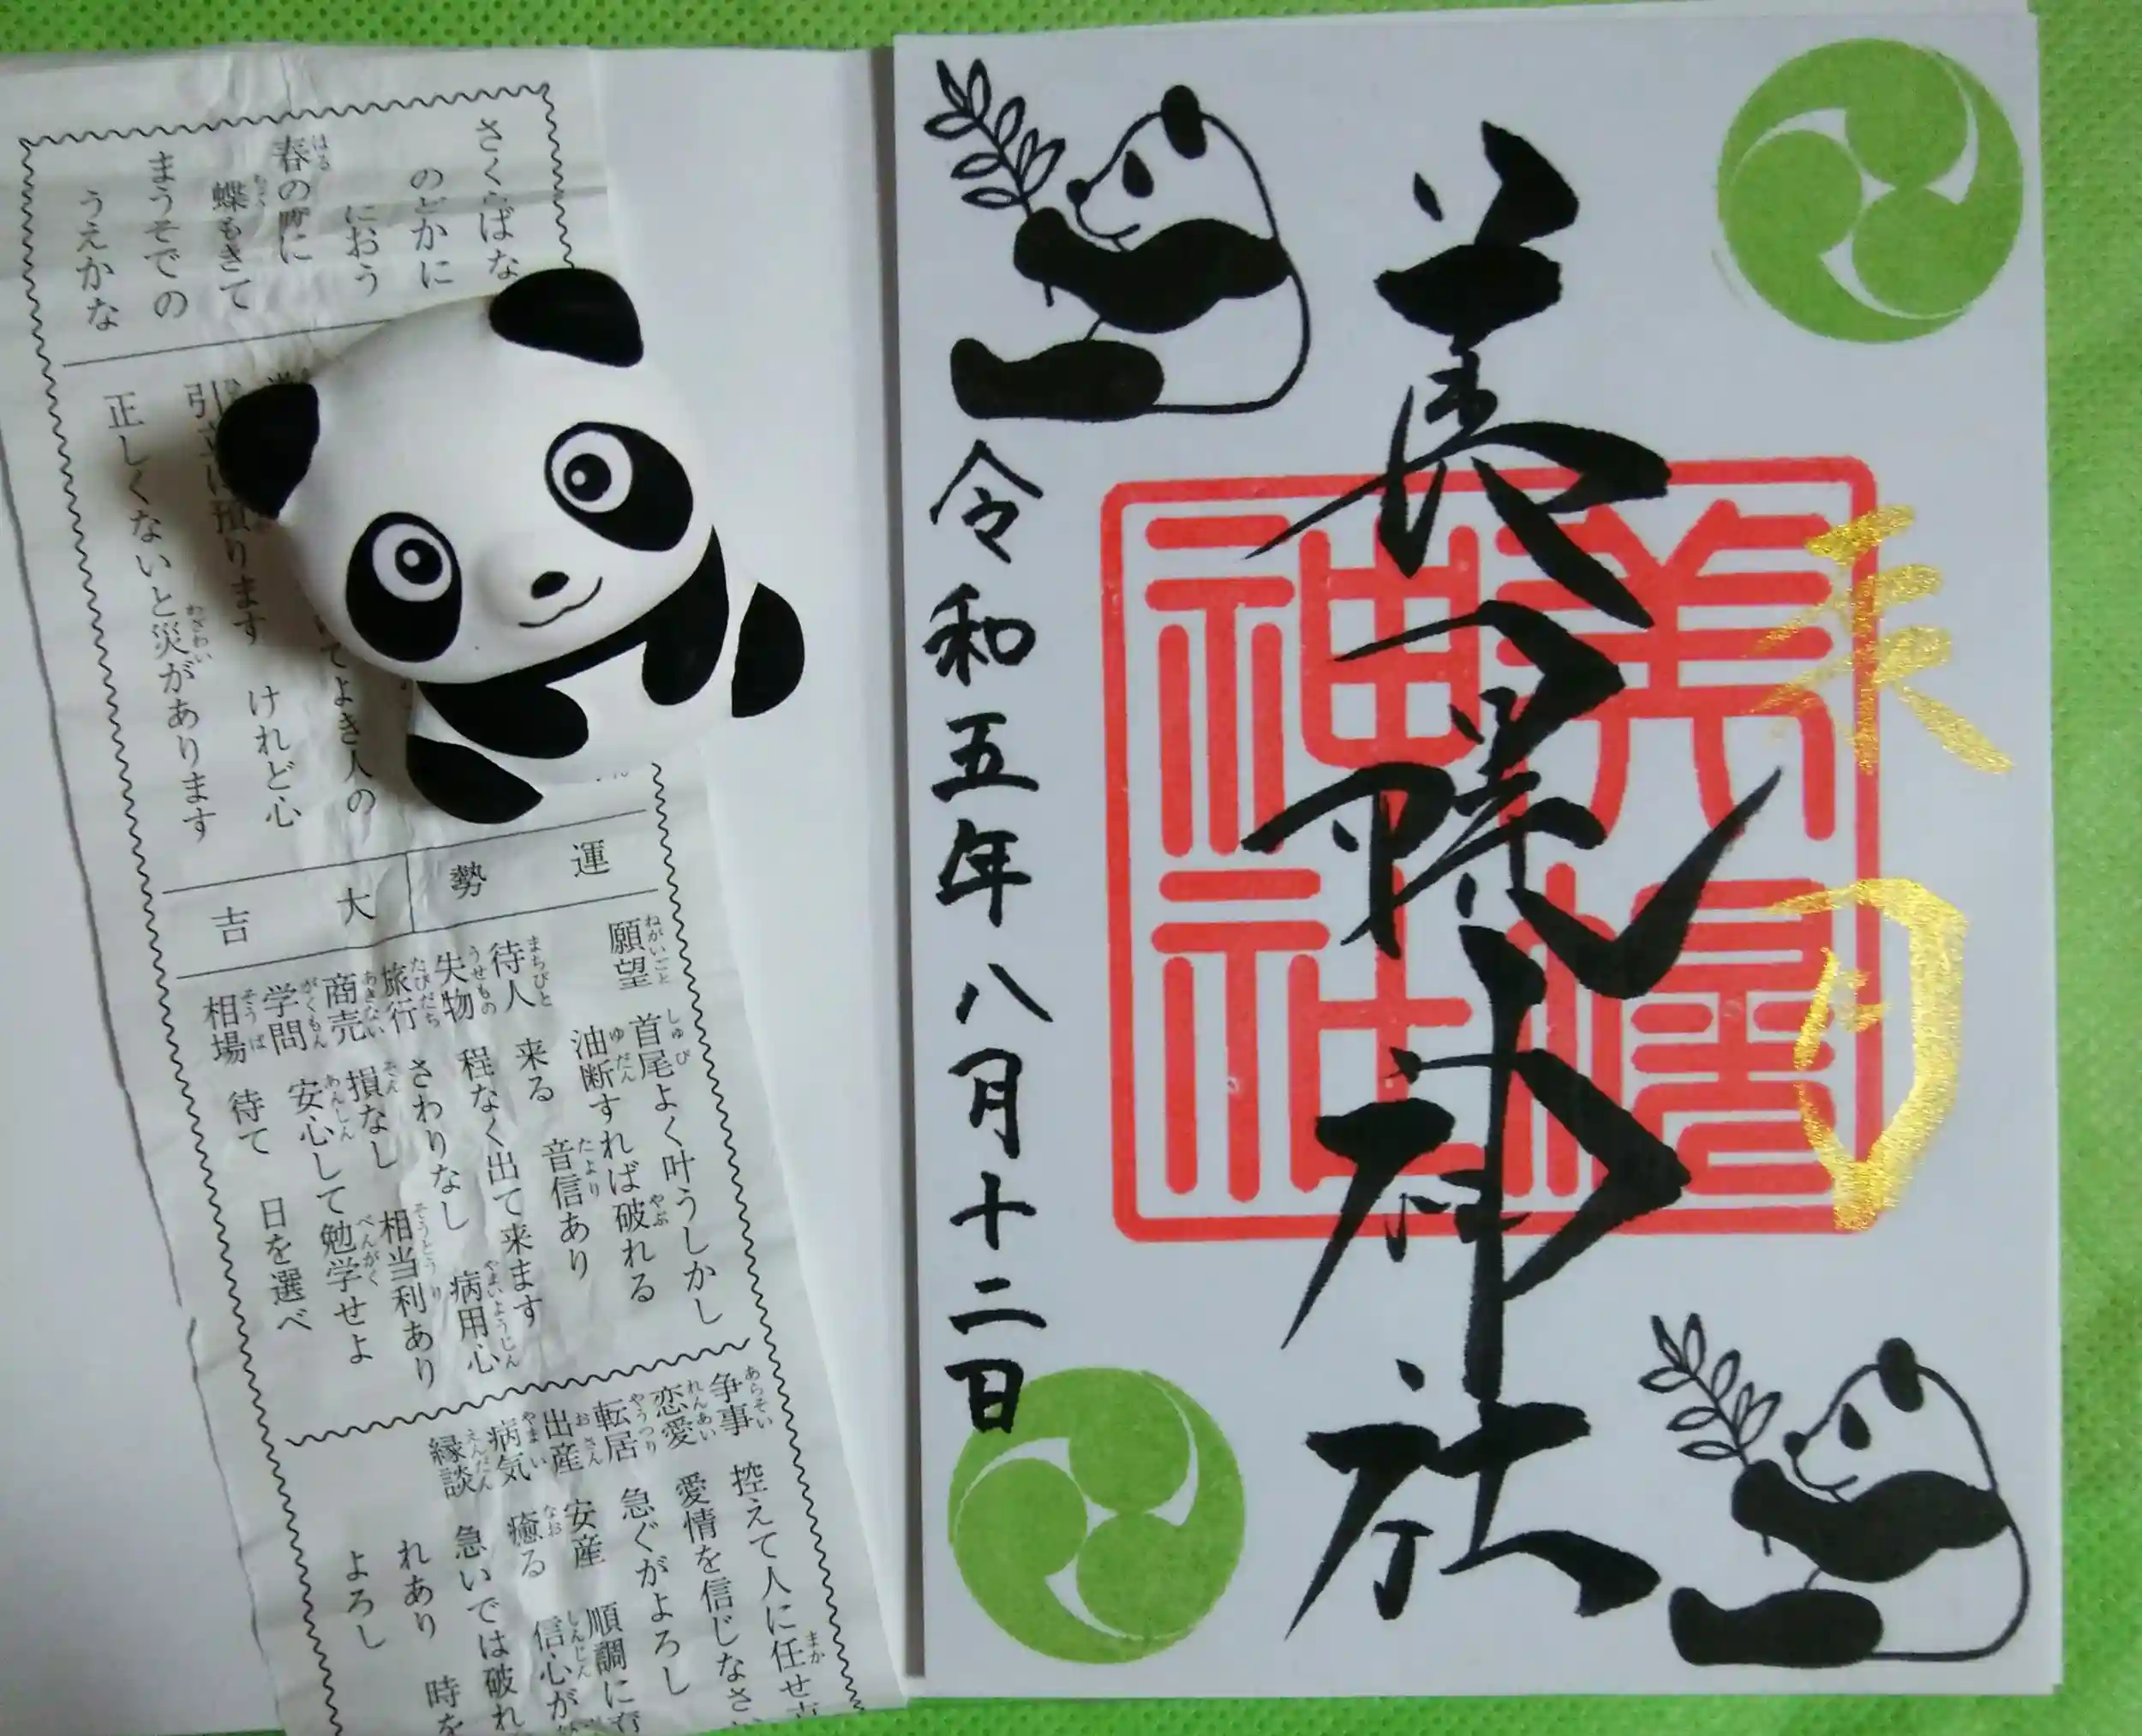 さくらばな
のどかに
におう
春の野に
蝶もきて
まうそでの
うえかな
てよき人の
引立に預ります けれど心
正しくないと災があります
運勢
大吉
願望 首尾よく叶うしかし
油断すれば破れる
待人 来る 音信あり
失物 程なく出て来ます
旅行 さわりなし 病用心
商売 損なし 相当利あり
学問 安心して勉学せよ
相場 待て 日を選べ
争事 控えて人に任せ
恋愛 愛情を信じなさ
転居 急ぐがよろし
出産 安産 順調に
病気 癒る 信心が
縁談 急いでは破れ
れあり 時を
よろし
美曽神社
令和五年八月十二日
神社